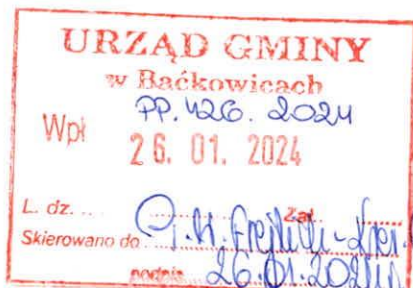 URZĄD GMINY
w Baćkowicach
PP. 426. 2024
Wpł
26. 01. 2024
L. dz. .... Zał. ........
Skierowano do
podpis 26.01.2024